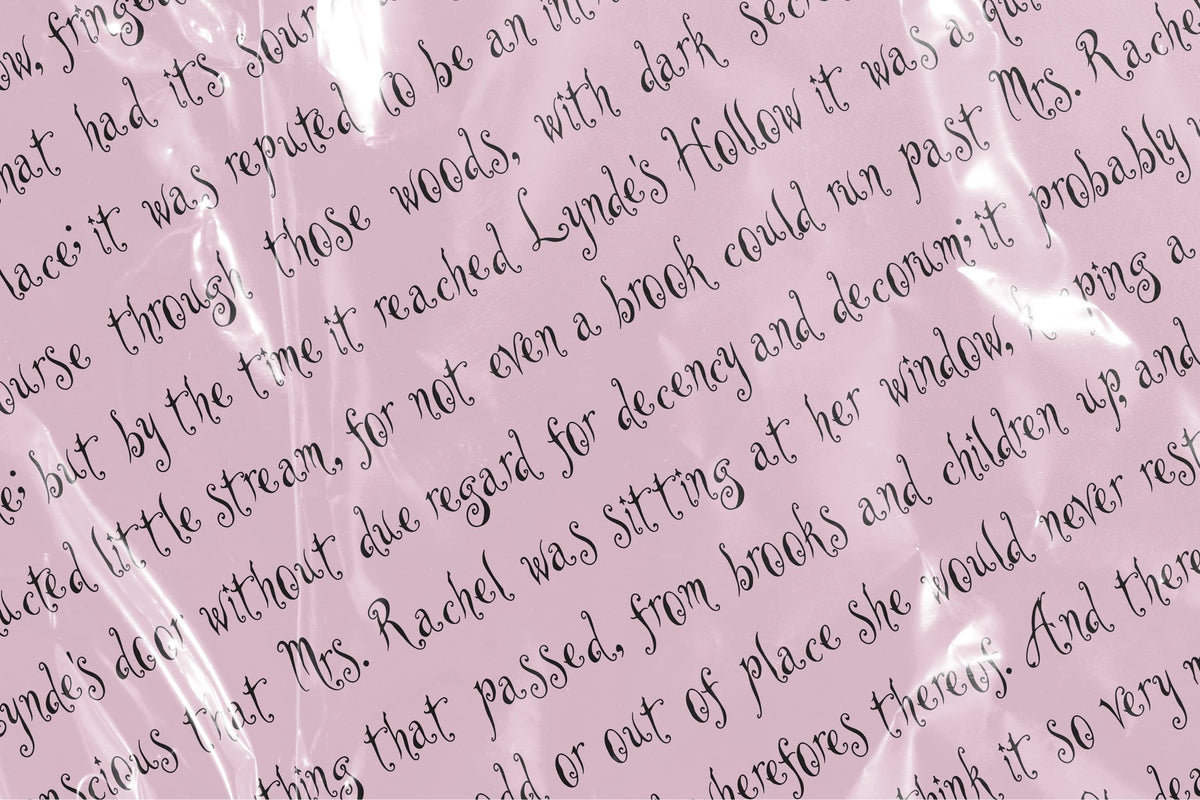 fringed
had its sour
lace; it was reputed to be an
ourse through those woods, with dark secre
e; but by the time it reached Lynde's Hollow it was a qui
ucted little stream, for not even a brook could run past Mrs. Rache
ynde's door without due regard for decency and decorum; it probably
nscious that Mrs. Rachel was sitting at her window, keeping a
thing that passed, from brooks and children up, and
odd or out of place she would never rest
herefores thereof. And there
think it so very